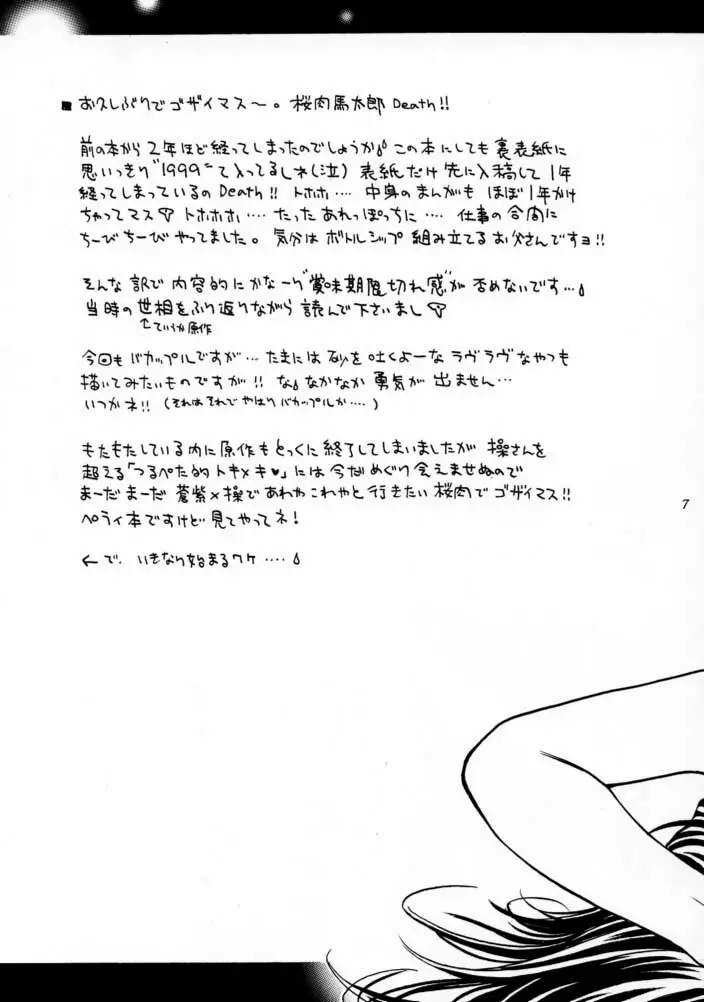 ■お久しぶりでゴザイマス〜。桜肉馬太郎Death!!
前の本から2年ほど経ってしまったのでしょうか この本にしても裏表紙に
思いっきり"1999"て入ってるしネ(泣) 表紙だけ先に入稿して1年
経ってしまっているのDeath!! トホホ…. 中身のまんがも ほぼ1年かけ
ちゃってマス トホホホ…. たったあれっぽっちに…. 仕事の合間に
ちーびちーびやってました。気分はボトルシップ組み立てるお父さんですヨ!!
そんな訳で内容的にかな〜り"賞味期限切れ感"が否めないです…
当時の世相をふり返りながら読んで下さいまし
↑ていうか原作
今回もバカップルですが… たまには砂を吐くよーなラヴラヴなやつも
描いてみたいものですが!! な、なかなか勇気が出ません…
いつかネ!! (それはそれでやはりバカップルか….)
もたもたしている内に原作もとっくに終了してしまいましたが 操さんを
超える「つるぺた的トキメキ♥」には今だめぐり会えませぬので
まーだまーだ 蒼紫×操であれやこれやと行きたい桜肉でゴザイマス!!
ペラィ本ですけど見てやってネ!
←で、いきなり始まるワケ….
7